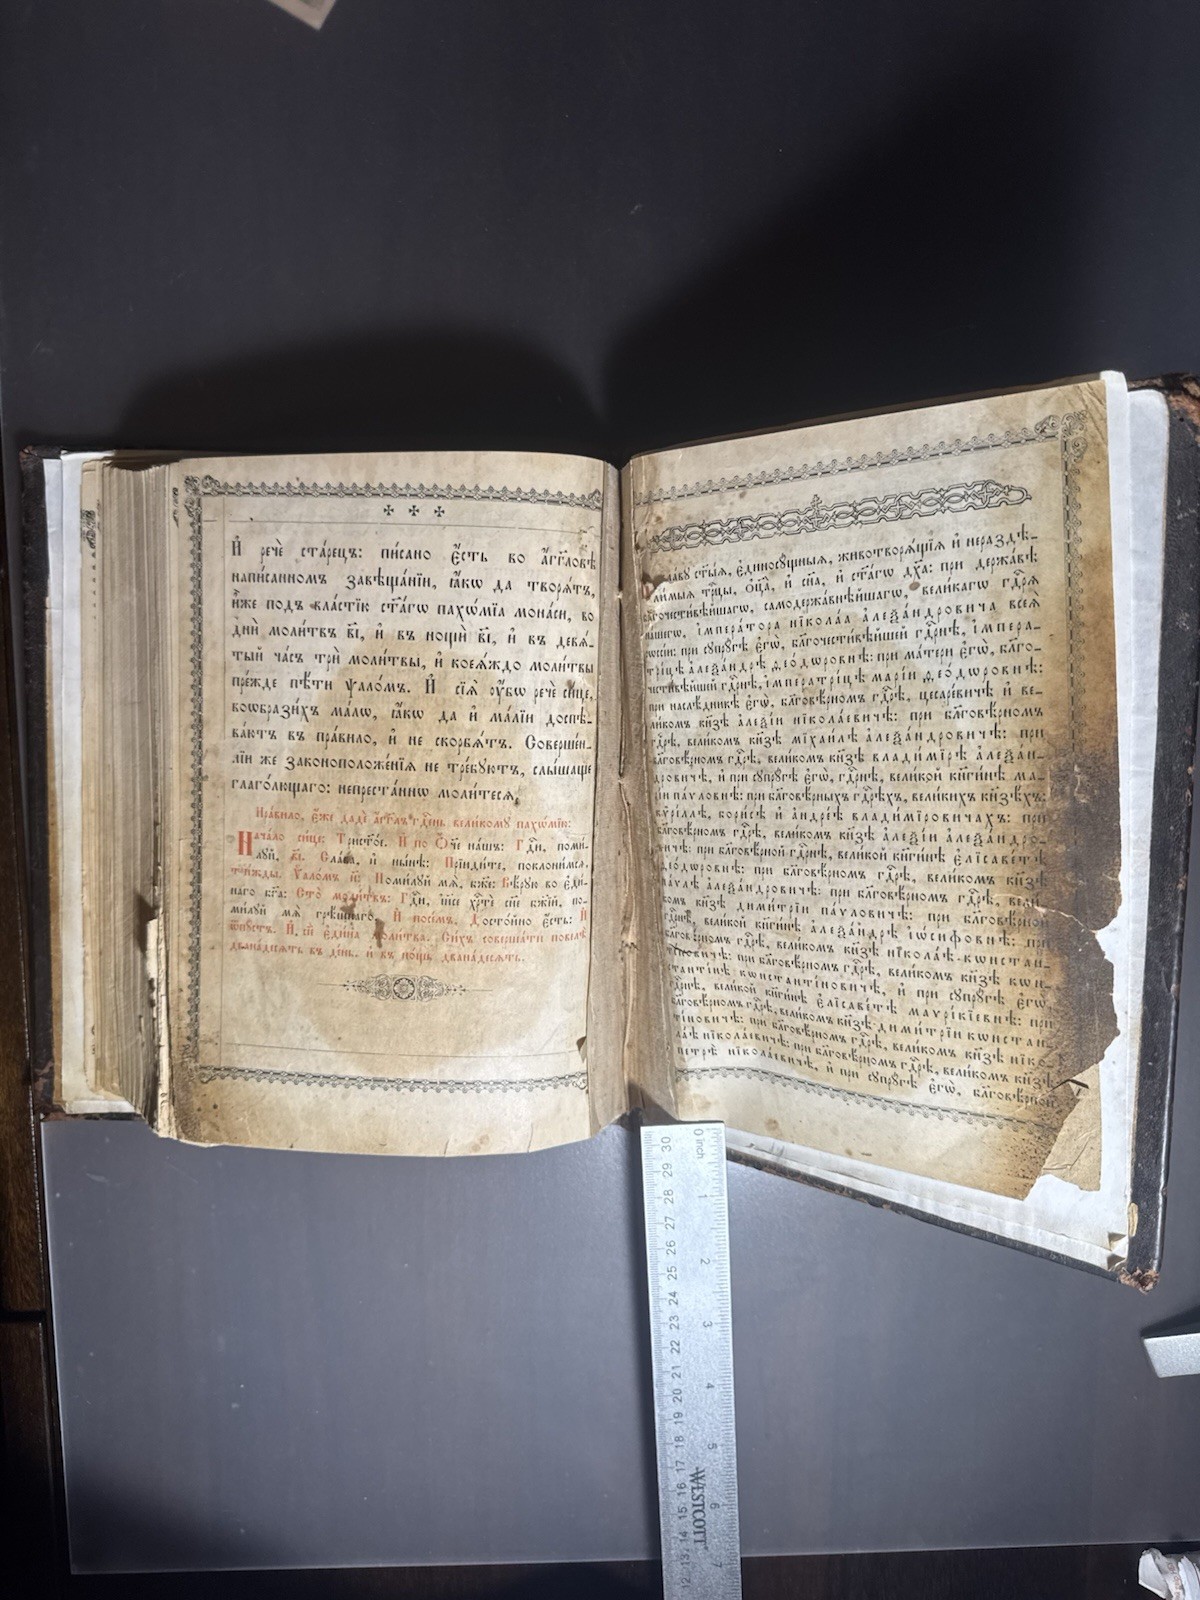 И҆ речѐ ста́рецъ: пи́сано є҆́сть во а҆́гг҃ловѣ
напи́санномъ завѣща́нїи, ꙗ҆́кѡ да творѧ́тъ,
и҆̀же подъ вла́стїю ст҃а́гѡ пахѡ́мїа мона́си, во
дни̑ моли́твъ в҃і, и҆ въ нощи̑ в҃і, и҆ въ девѧ́-
тый ча́съ трѝ моли̑твы, и҆ коеѧ́ждо моли́твы
пре́жде пѣ́ти ѱало́мъ. И҆ сїѧ̑ ᲂу҆́бѡ речѐ си́це,
воѡбрази́хъ ма́лѡ, ꙗ҆́кѡ да и҆ ма́лїи доспѣ-
ва́ютъ въ пра́вило, и҆ не скорбѧ́тъ. Соверше́н-
нїи же законоположе́нїѧ не тре́буютъ, слы́шаще
глаго́лющаго: непреста́ннѡ моли́тесѧ.
Пра́вило, є҆́же дадѐ а҆́гг҃лъ гд҇ень вели́кому пахѡ́мїю:
Нача́ло си́це: Трист҃о́е. И҆ по Ѻ҆́ч҃е на́шъ: Гд҇и, поми́-
луй, в҃і. Сла́ва, и҆ ны́нѣ: Прїиди́те, поклони́мсѧ.
три́жды. Ѱало́мъ н҃: Поми́луй мѧ̀, бж҃е: Вѣ́рую во є҆ди́-
наго бг҃а: Сто̀ моли́твъ: Гд҇и, і҆и҃се хр҇тѐ сн҃е бж҃їй, по-
ми́луй мѧ̀ грѣ́шнаго. И҆ посе́мъ, Досто́йно є҆́сть: И҆
ѿпу́стъ. И҆ сїѐ є҆ди́на моли́тва. Си́хъ соверша́ти повелѣ̀
двана́десѧть въ де́нь, и҆ въ но́щь двана́десѧть.
сла́ву ст҃ы́ѧ, є҆диносу́щныѧ, животворѧ́щїѧ и҆ нераздѣ-
ли́мыѧ тр҇цы, ѻ҆ц҃а̀, и҆ сн҃а, и҆ ст҃а́гѡ дх҃а: при держа́вѣ
бл҃гочести́вѣйшагѡ, самодержа́внѣйшагѡ, вели́кагѡ гд҇рѧ
на́шегѡ, і҆мпера́тора нїкола́а а҆леѯа́ндровича всеѧ̀
рѡссі́и: при супру́гѣ є҆гѡ̀, бл҃гочести́вѣйшей гд҇рнѣ, і҆мпера-
три́цѣ а҆леѯа́ндрѣ ѳео́дѡровнѣ: при ма́тери є҆гѡ̀, бл҃го-
чести́вѣйшей гд҇рнѣ, і҆мператри́цѣ марі́и ѳео́дѡровнѣ:
при наслѣ́дникѣ є҆гѡ̀, бл҃говѣ́рномъ гд҇рѣ, цесаре́вичѣ и҆ ве-
ли́комъ кн҃зѣ а҆леѯі́и нїкола́евичѣ: при бл҃говѣ́рномъ
гд҇рѣ, вели́комъ кн҃зѣ мїхаи́лѣ а҆леѯа́ндровичѣ: при
бл҃говѣ́рномъ гд҇рѣ, вели́комъ кн҃зѣ влади́мїрѣ а҆леѯа́н-
дровичѣ, и҆ при супру́гѣ є҆гѡ̀, гд҇рнѣ, вели́кой кн҃ги́нѣ ма-
рі́и па́vловнѣ: при бл҃говѣ́рныхъ гд҇рѣхъ, вели́кихъ кн҃зѣхъ:
кѷрі́ллѣ, бори́сѣ и҆ а҆ндре́ѣ влади́мїровичахъ: при
бл҃говѣ́рномъ гд҇рѣ, вели́комъ кн҃зѣ а҆леѯі́и а҆леѯа́ндро-
вичѣ: при бл҃говѣ́рной гд҇рнѣ, вели́кой кн҃ги́нѣ є҆лїсаве́тѣ
ѳео́дѡровнѣ: при бл҃говѣ́рномъ гд҇рѣ, вели́комъ кн҃зѣ
па́ѵлѣ а҆леѯа́ндровичѣ: при бл҃говѣ́рномъ гд҇рѣ, вели-
комъ кн҃зѣ дими́трїи па́ѵловичѣ: при бл҃говѣ́рной
гд҇рнѣ, вели́кой кн҃ги́нѣ а҆леѯа́ндрѣ і҆ѡ́сифовнѣ: при
бл҃говѣ́рномъ гд҇рѣ, вели́комъ кн҃зѣ нїкола́ѣ кѡнстан-
ті́новичѣ: при бл҃говѣ́рномъ гд҇рѣ, вели́комъ кн҃зѣ кѡн-
стантї́нѣ кѡнстантї́новичѣ, и҆ при супру́гѣ є҆гѡ̀,
гд҇рнѣ, вели́кой кн҃ги́нѣ є҆лїсаве́тѣ маѵрі́кїевнѣ: при
бл҃говѣ́рномъ гд҇рѣ, вели́комъ кн҃зѣ дими́трїи кѡнстан-
ті́новичѣ: при бл҃говѣ́рномъ гд҇рѣ, вели́комъ кн҃зѣ нїко-
ла́ѣ нїкола́евичѣ: при бл҃говѣ́рномъ гд҇рѣ, вели́комъ кн҃зѣ
петрѣ̀ нїкола́евичѣ, и҆ при супру́гѣ є҆гѡ̀, бл҃говѣ́рной
0 inch 1 2 3 4 5 6 7
30 29 28 27 26 25 24 23 22 21 20 19 18 17 16 15 14 13 12
WESTCOTT